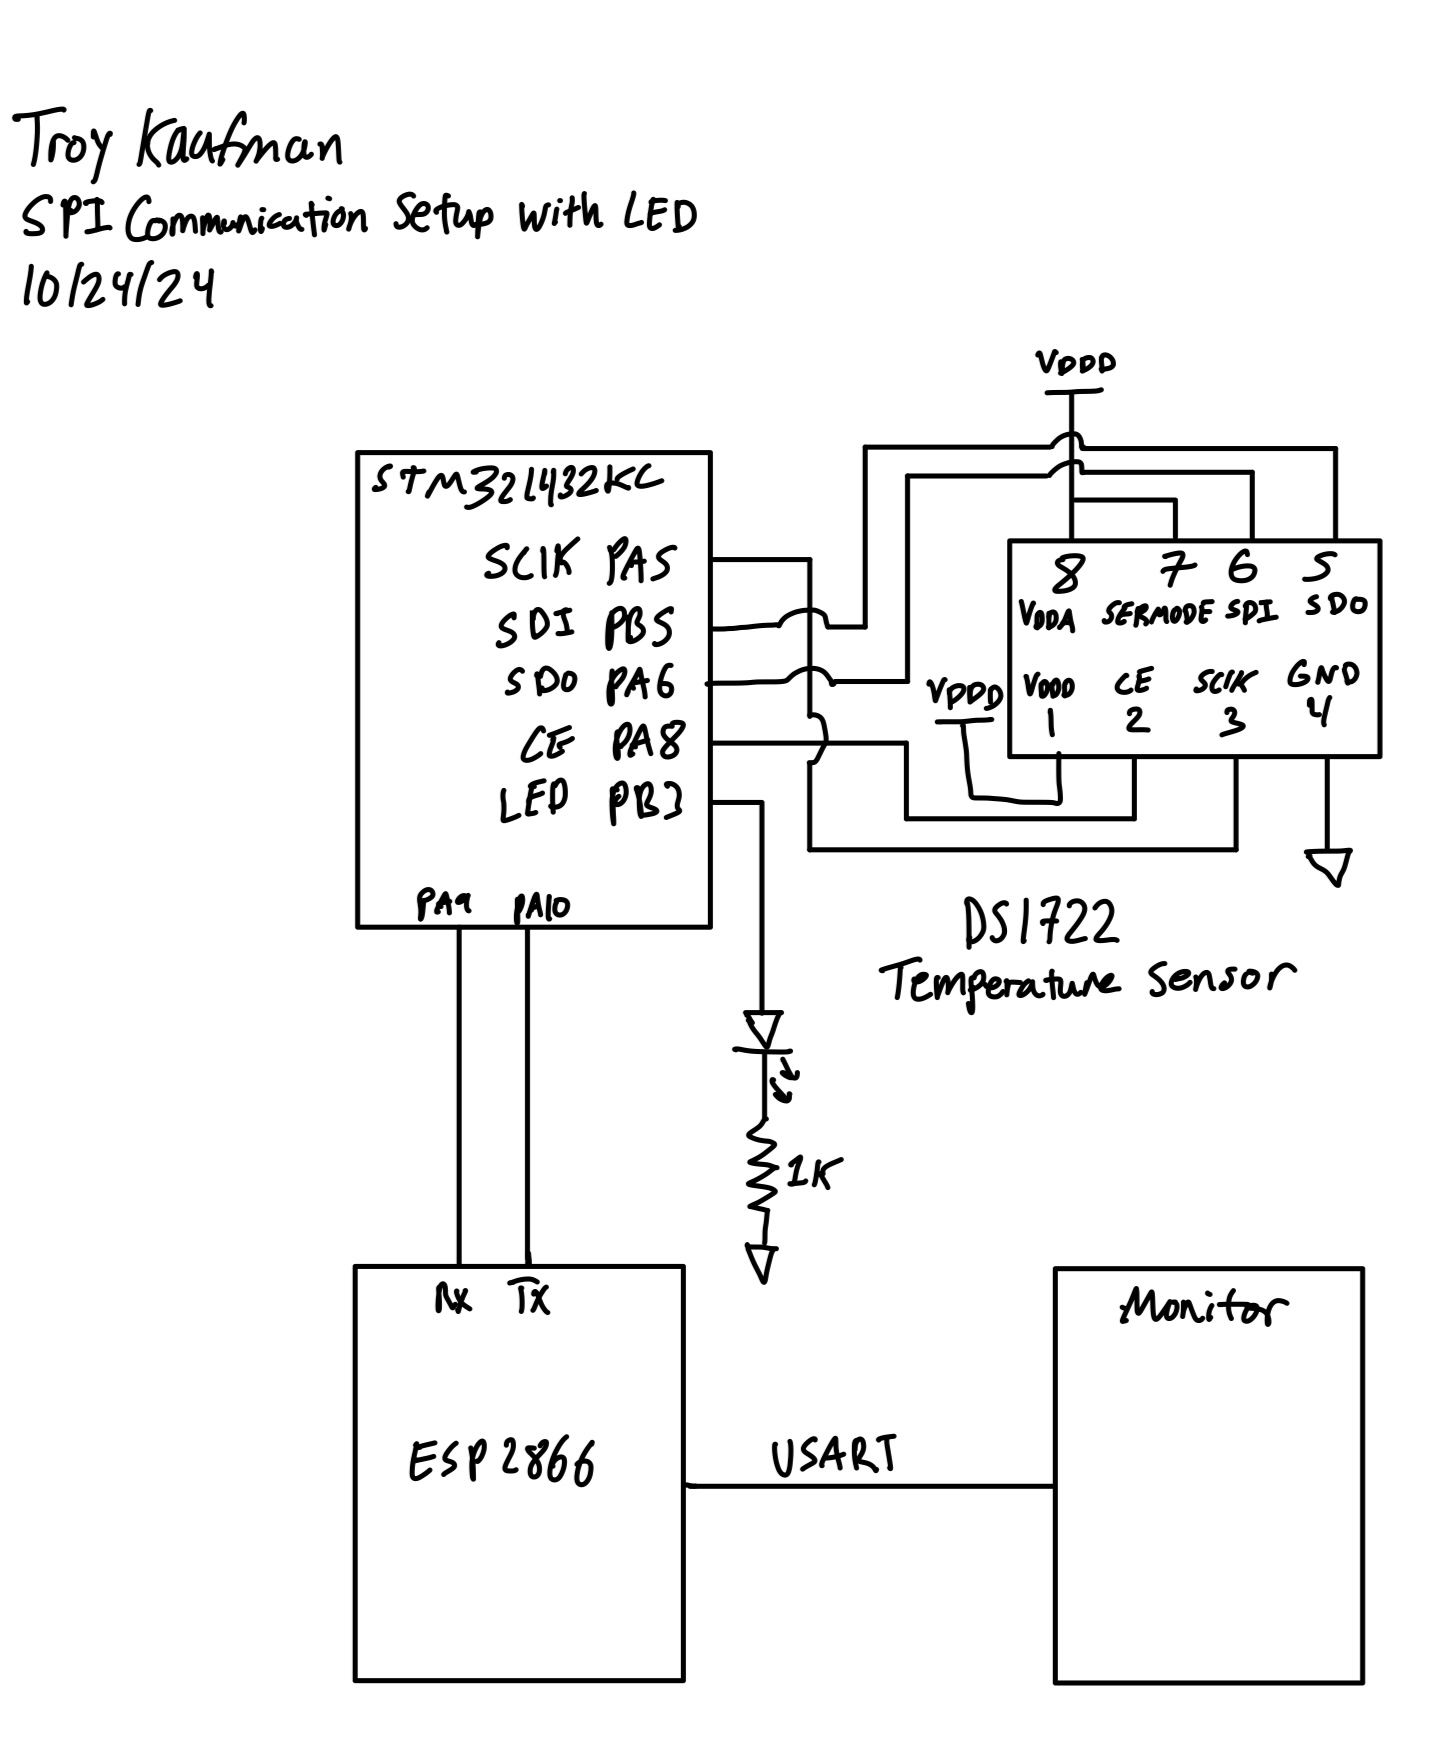 Troy Kaufman
SPI Communication Setup with LED
10/24/24
VDDD
STM32L432KC
SCIK PA5
SDI PB5
SDO PA6
CE PA8
LED PB3
PA9 PA10
8 7 6 5
VDDA SERMODE SDI SDO
VDDD
VDDD CE SCIK GND
1 2 3 4
DS1722
Temperature Sensor
1K
RX TX
ESP2866
USART
Monitor